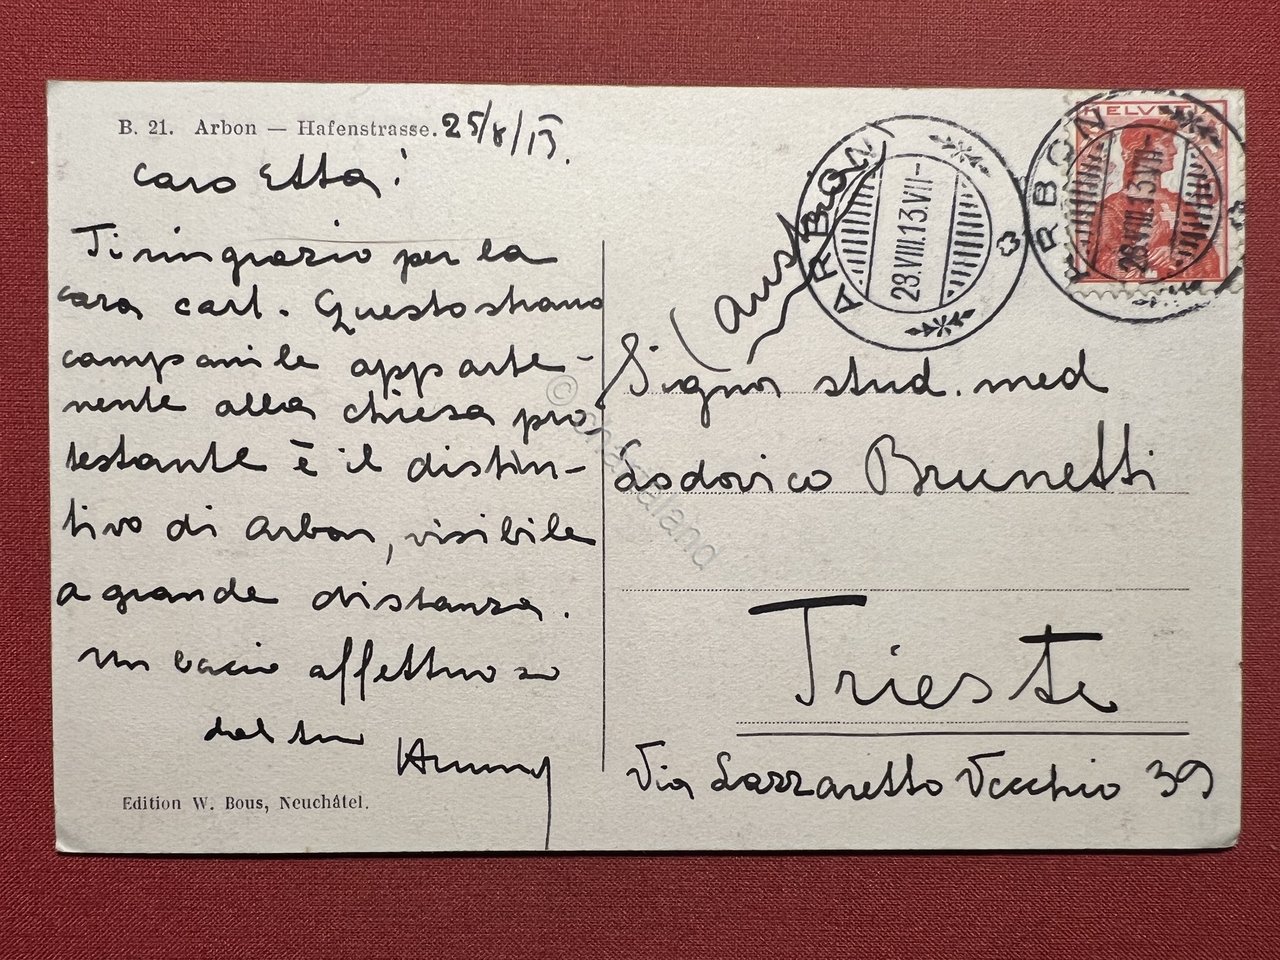 B. 21. Arbon — Hafenstrasse.
25/8/13.
caro Etta!
Ti ringrazio per la
cara cart. Questo strano
campanile apparte-
nente alla chiesa pro-
testante è il distin-
tivo di Arbon, visibile
a grande distanza.
Un bacio affettuoso
dal tuo
Edition W. Bous, Neuchâtel.
ARBON
23.VIII.13.VII-
HELVETIA
ARBON
23.VIII.13.VII-
(Aust
Signor stud. med
Lodovico Brunetti
Trieste
Via Lazzaretto Vecchio 39
© chasteland